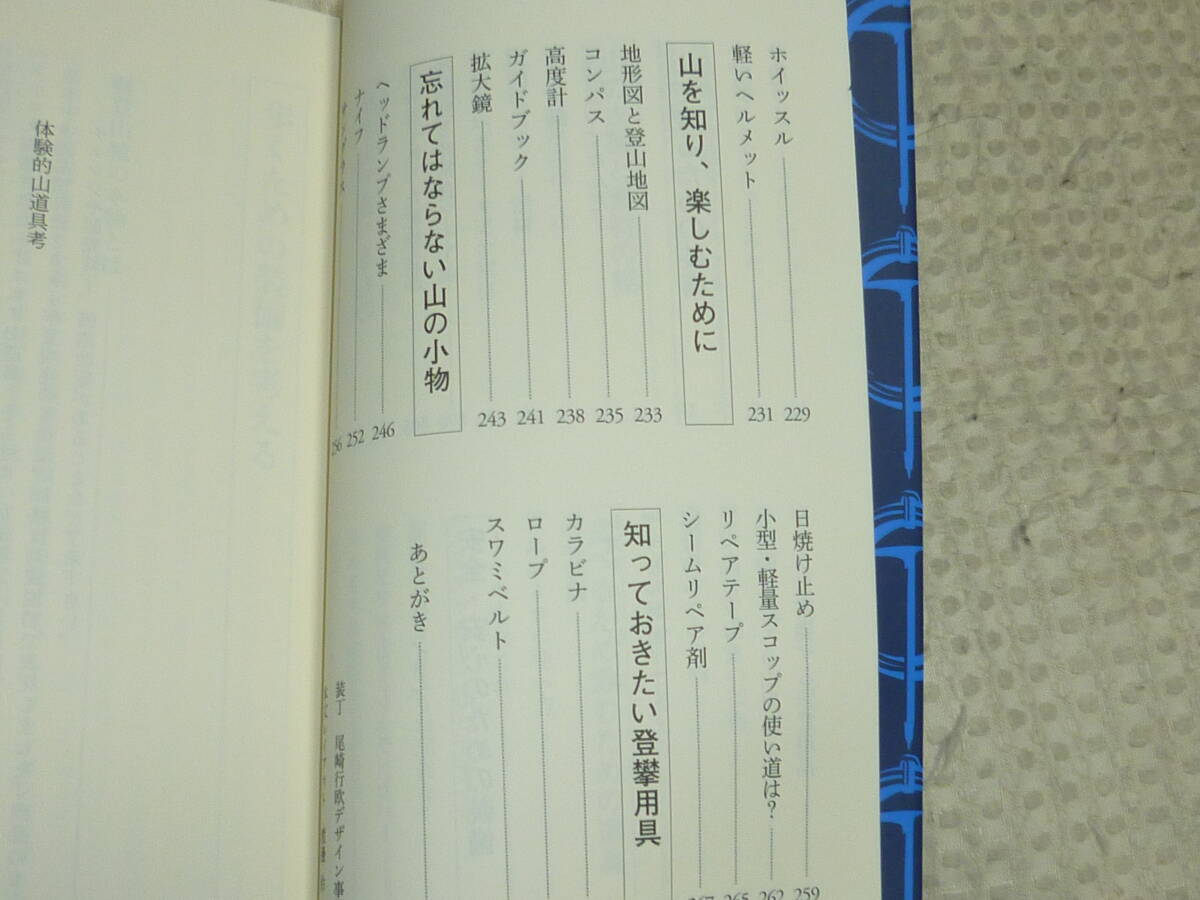 ホイッスル 229
軽いヘルメット 231
山を知り、楽しむために
地形図と登山地図 233
コンパス 235
高度計 238
ガイドブック 241
拡大鏡 243
忘れてはならない山の小物
ヘッドランプさまざま 246
ナイフ 252
256
日焼け止め 259
小型・軽量スコップの使い道は? 262
リペアテープ 265
シームリペア剤 267
知っておきたい登攀用具
カラビナ
ロープ
スワミベルト
あとがき
装丁 尾崎行欧デザイン事
体験的山道具考